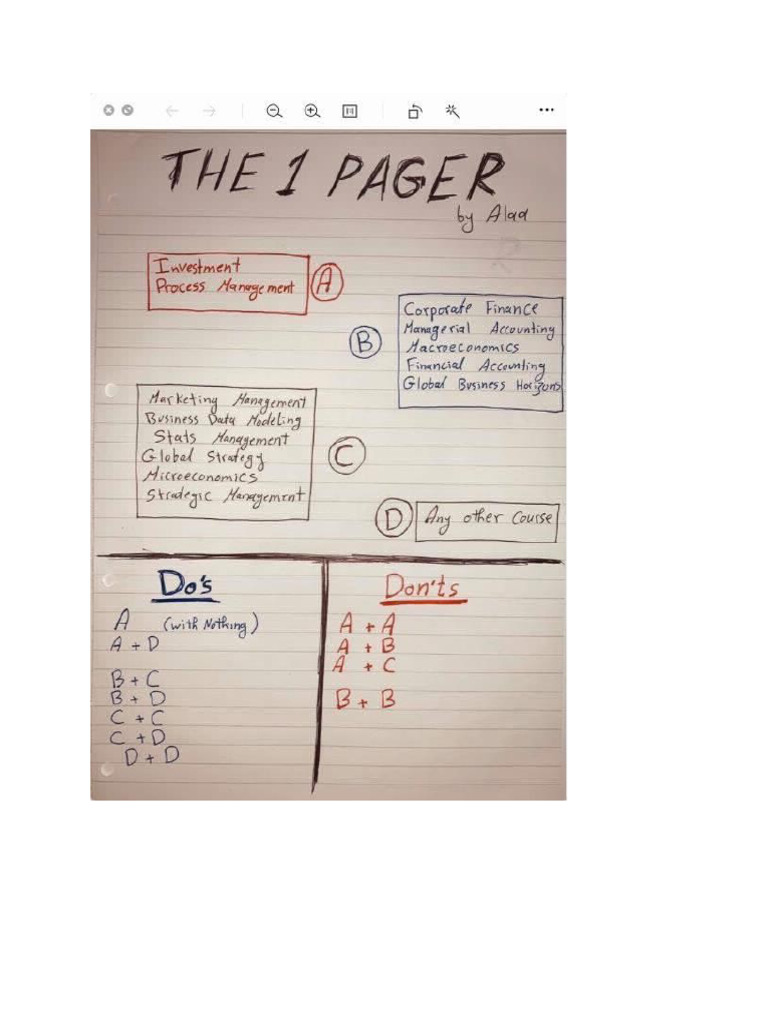 THE 1 PAGER
by Alaa
Investment
Process Management
A
B
Corporate Finance
Managerial Accounting
Macroeconomics
Financial Accounting
Global Business Horizons
Marketing Management
Business Data Modeling
Stats Management
Global Strategy
Microeconomics
Strategic Management
C
D
Any other course
Do's
A (with Nothing)
A + D
B + C
B + D
C + C
C + D
D + D
Don'ts
A + A
A + B
A + C
B + B